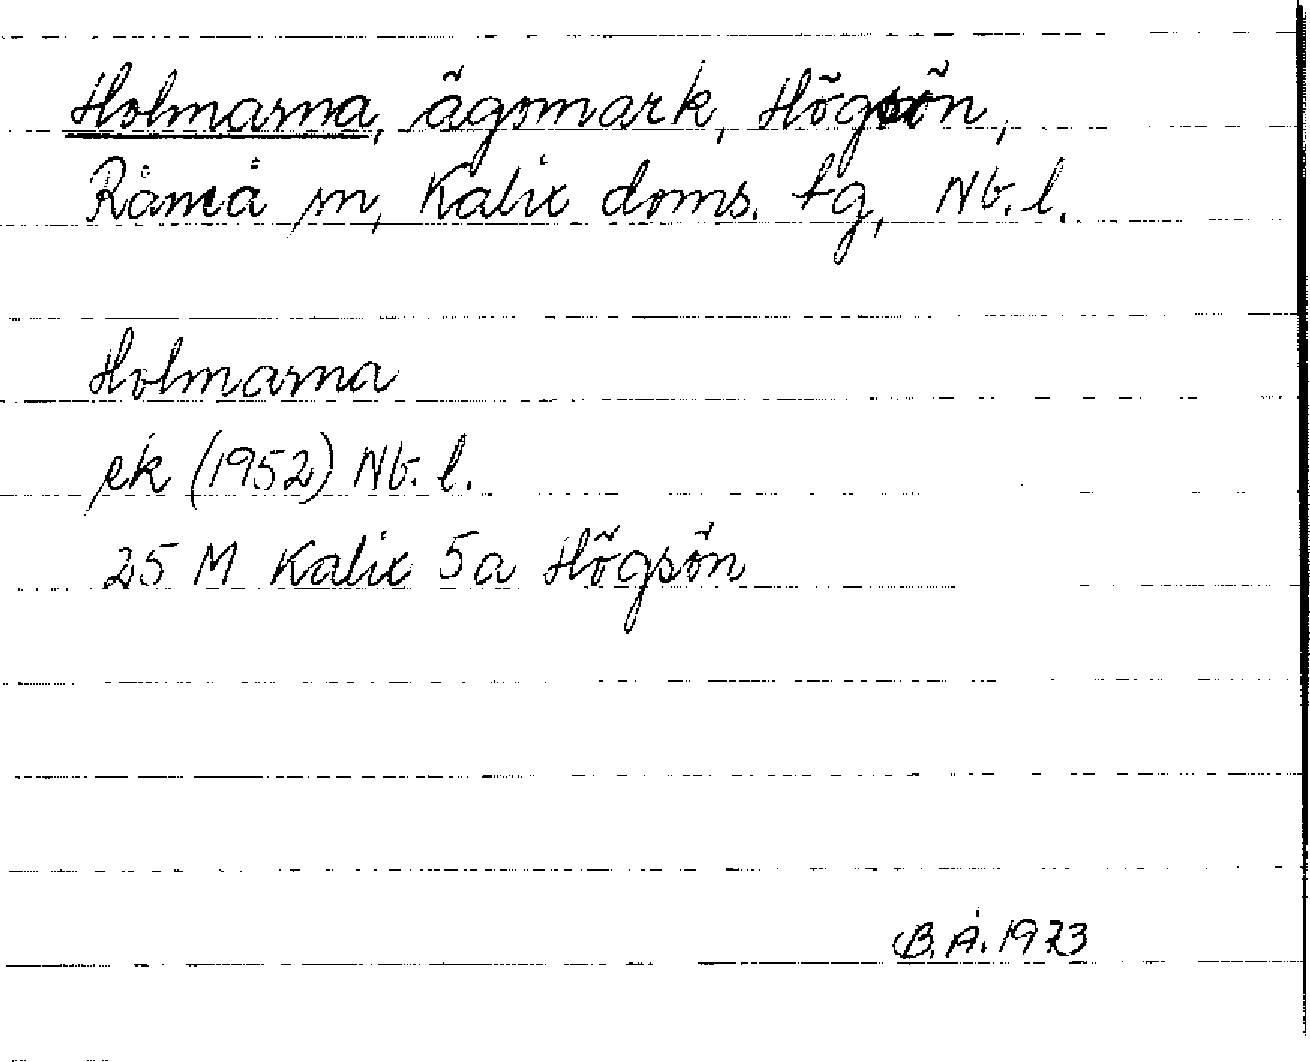 Holmarna, ägomark, Högsön,
Råneå sn, Kalix doms. tg, Nb. l.
Holmarna
ek (1952) Nb. l.
25 M Kalix 5a Högsön
B. Å. 1973